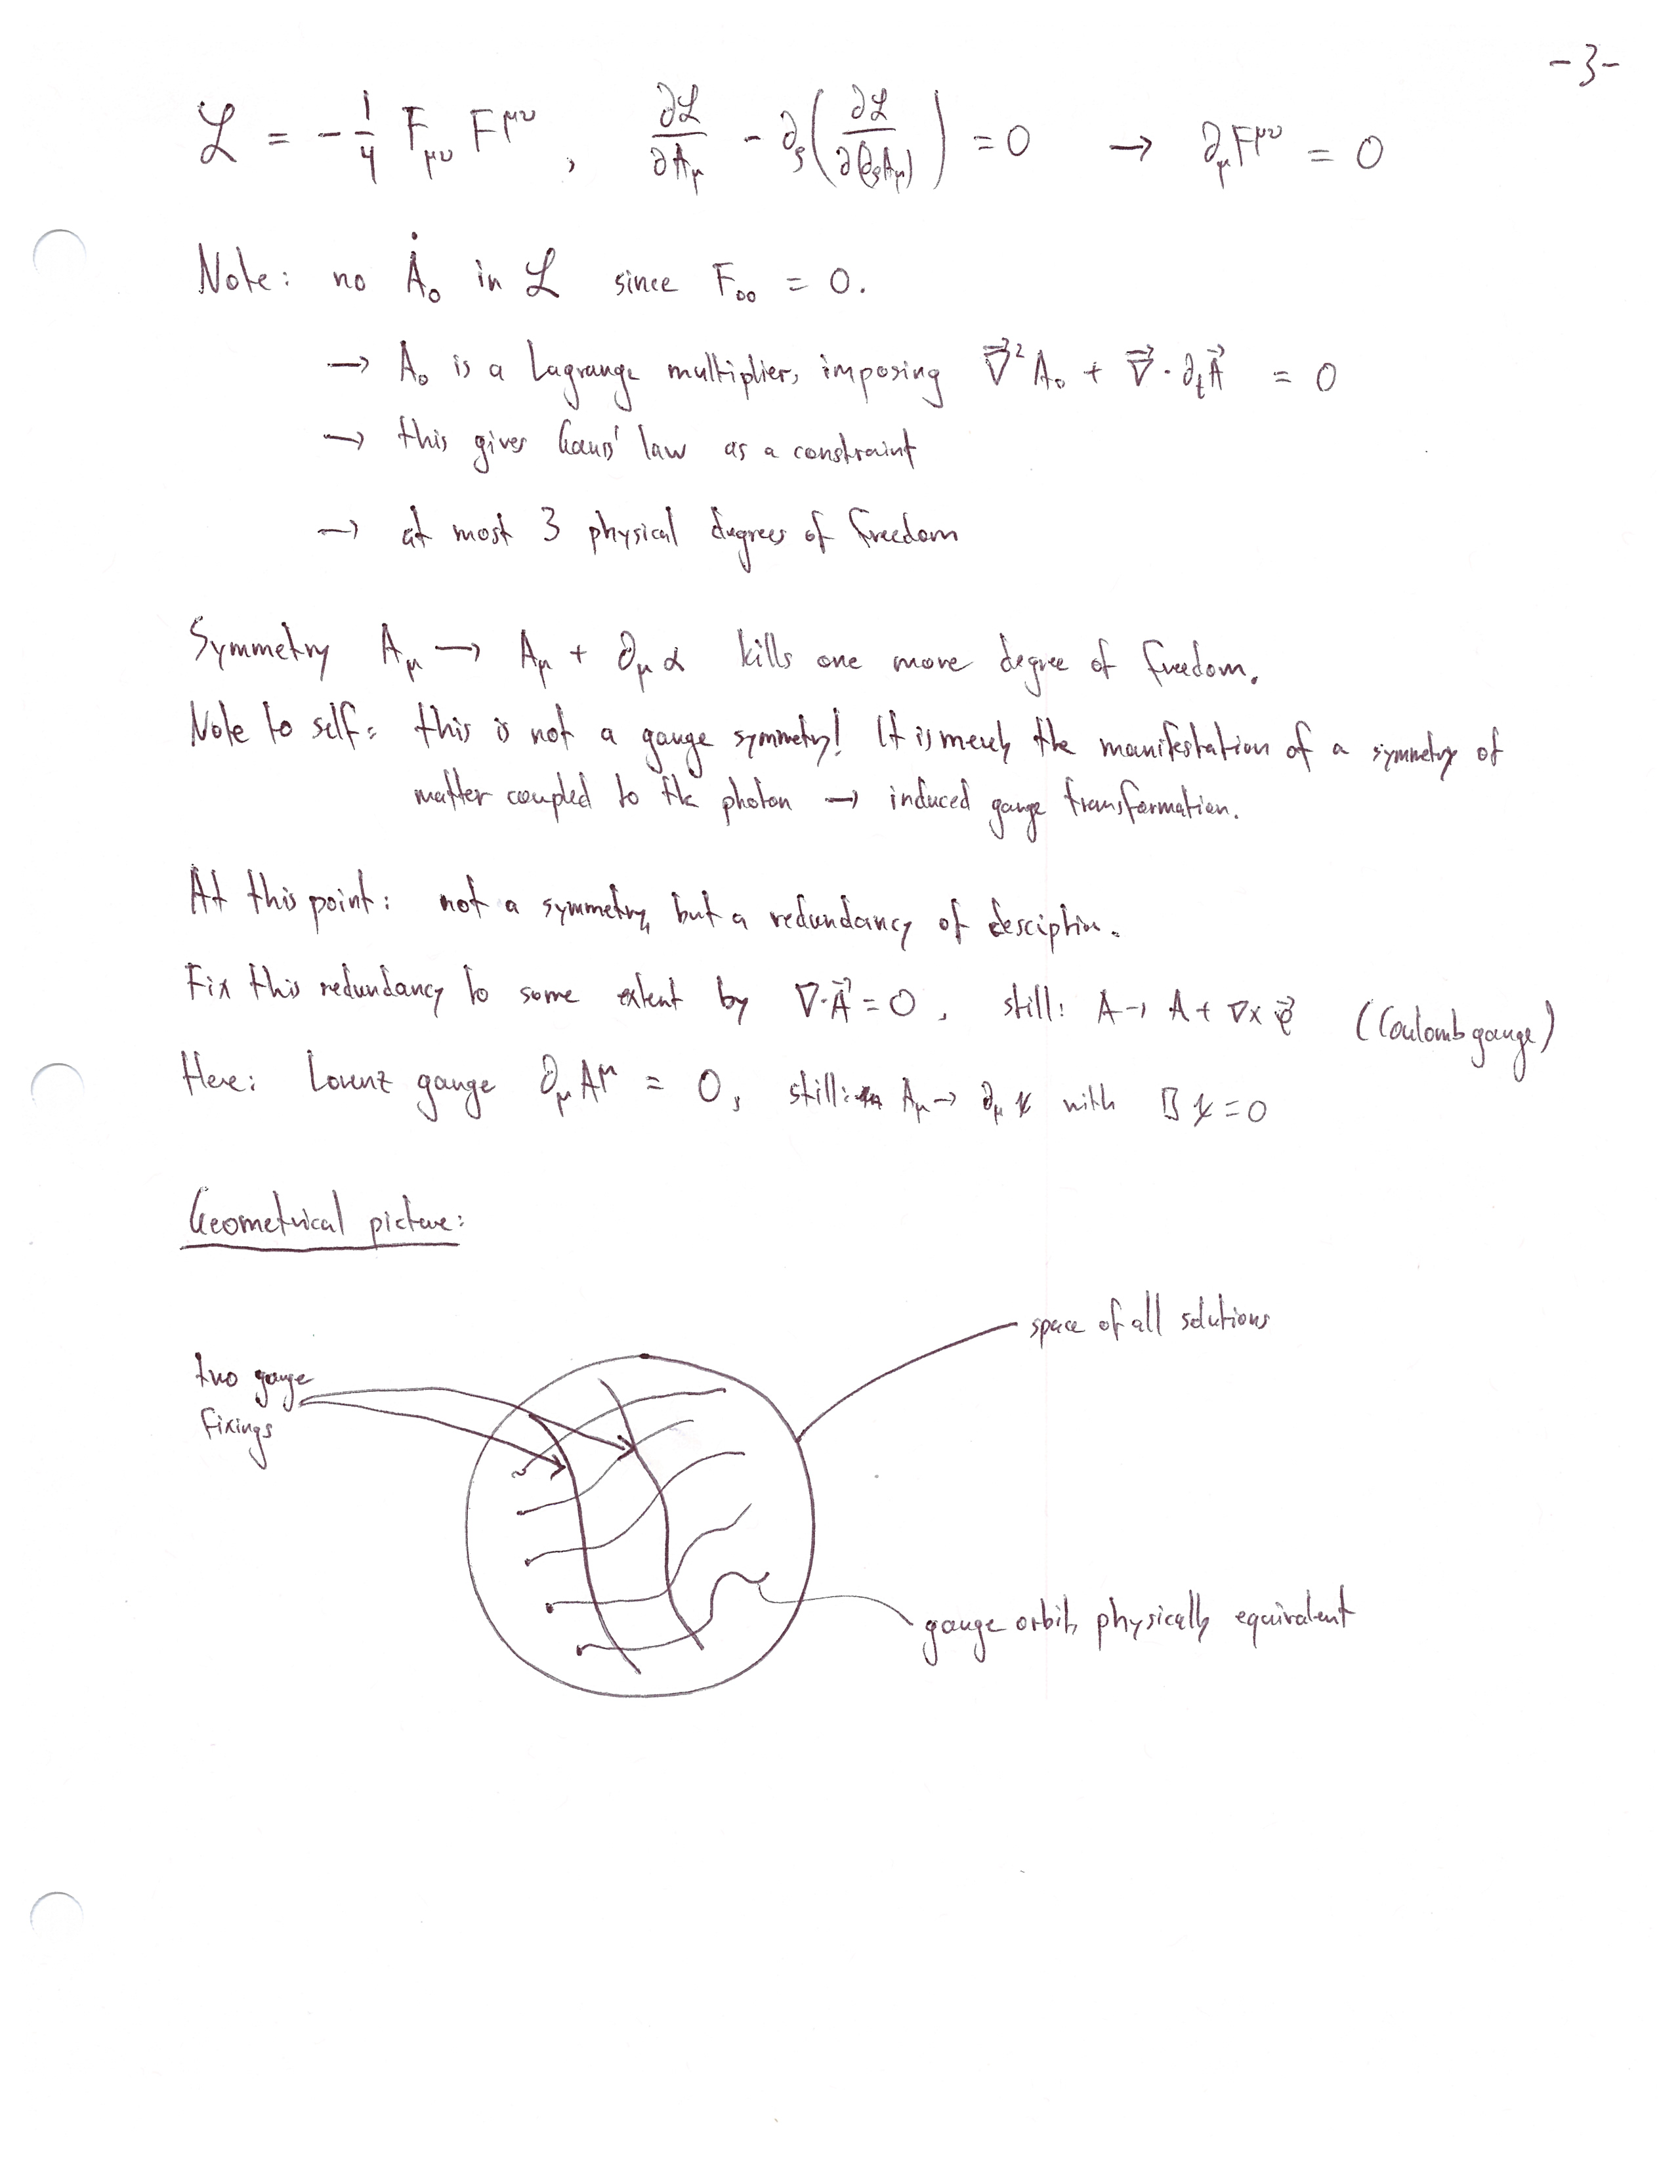 -3-
ℒ = -1/4 F_μν F^μν , ∂ℒ/∂A_μ - ∂_ρ(∂ℒ/∂(∂_ρA_μ)) = 0 → ∂_μF^μν = 0
Note: no Ȧ₀ in ℒ since F₀₀ = 0.
→ A₀ is a Lagrange multiplier, imposing ∇⃗²A₀ + ∇⃗·∂_tA⃗ = 0
→ this gives Gauss' law as a constraint
→ at most 3 physical degrees of freedom
Symmetry A_μ → A_μ + ∂_μ α kills one more degree of freedom.
Note to self: this is not a gauge symmetry! It is merely the manifestation of a symmetry of
matter coupled to the photon → induced gauge transformation.
At this point: not a symmetry, but a redundancy of desciption.
Fix this redundancy to some extent by ∇·A⃗ = 0, still: A → A + ∇× φ⃗ (Coulomb gauge)
Here: Lorenz gauge ∂_μA^μ = 0, still: A_μ → ∂_μ χ with □ χ = 0
Geometrical picture:
space of all solutions
two gauge
fixings
gauge orbit, physically equivalent